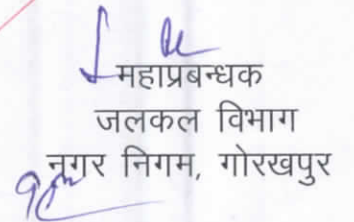 महाप्रबन्धक
जलकल विभाग
नगर निगम, गोरखपुर